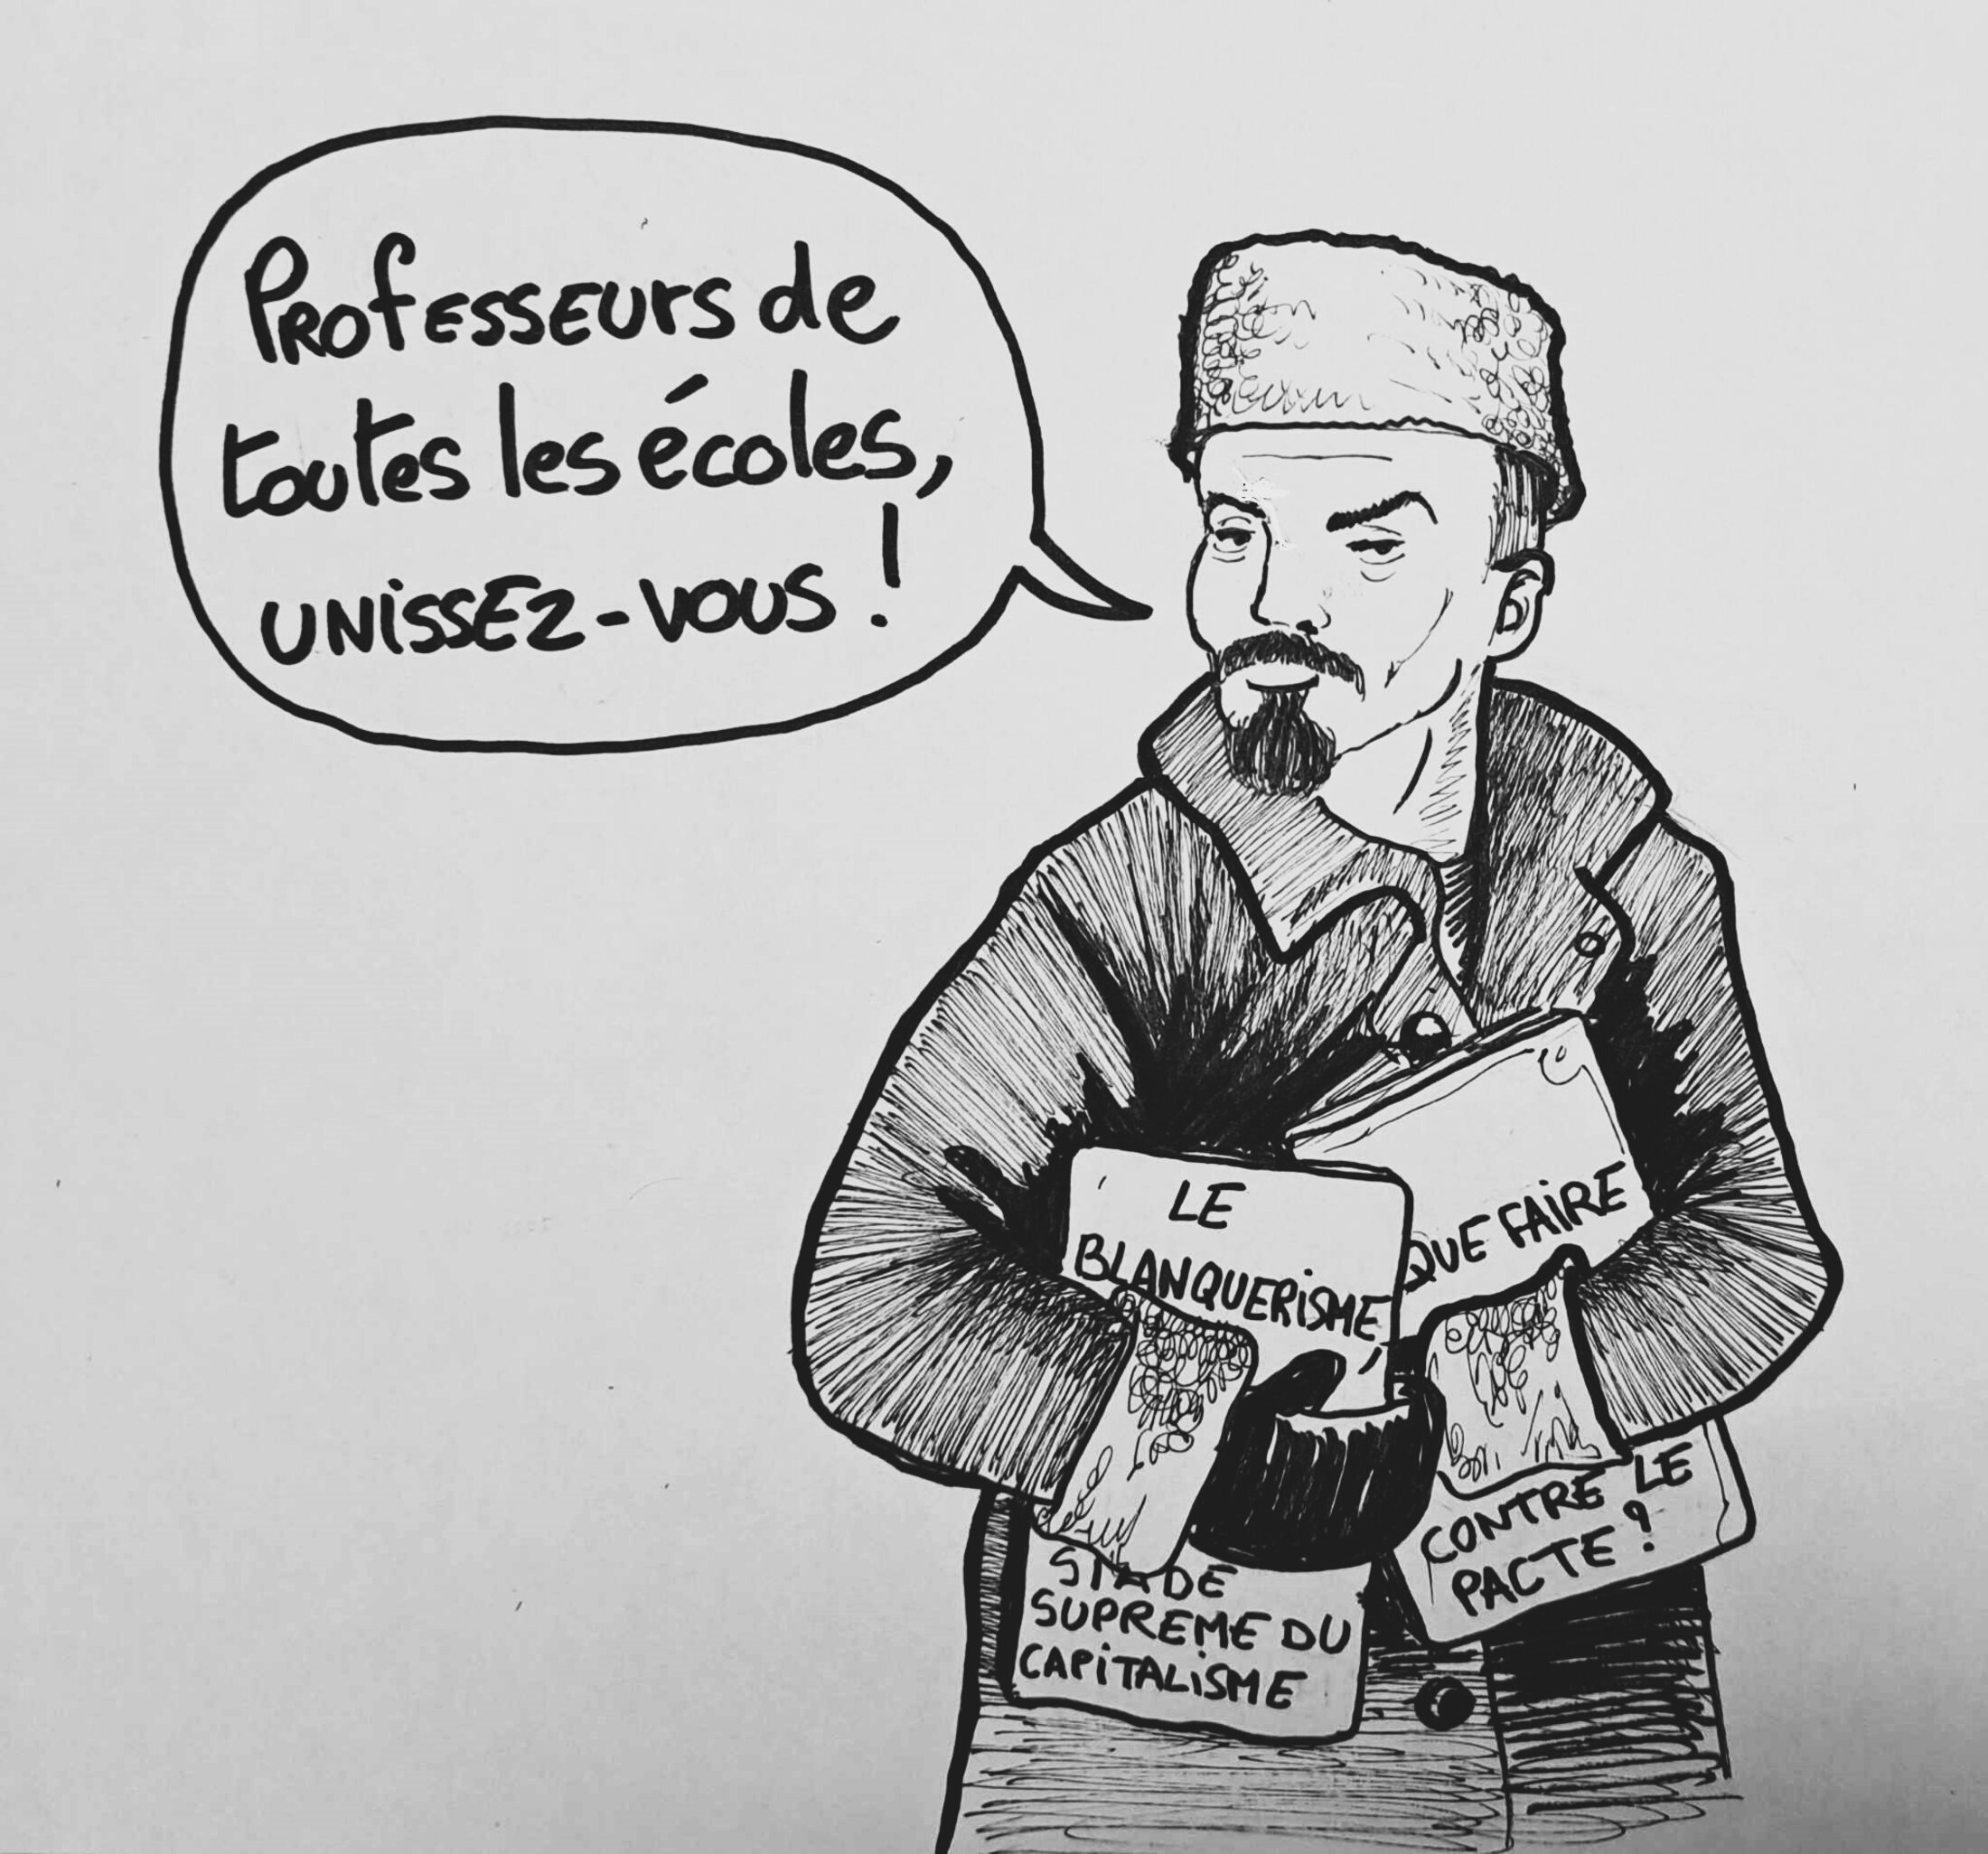 Professeurs de
toutes les écoles,
unissez-vous !
LE
BLANQUERISME,
STADE
SUPREME DU
CAPITALISME
QUE FAIRE
CONTRE LE
PACTE ?